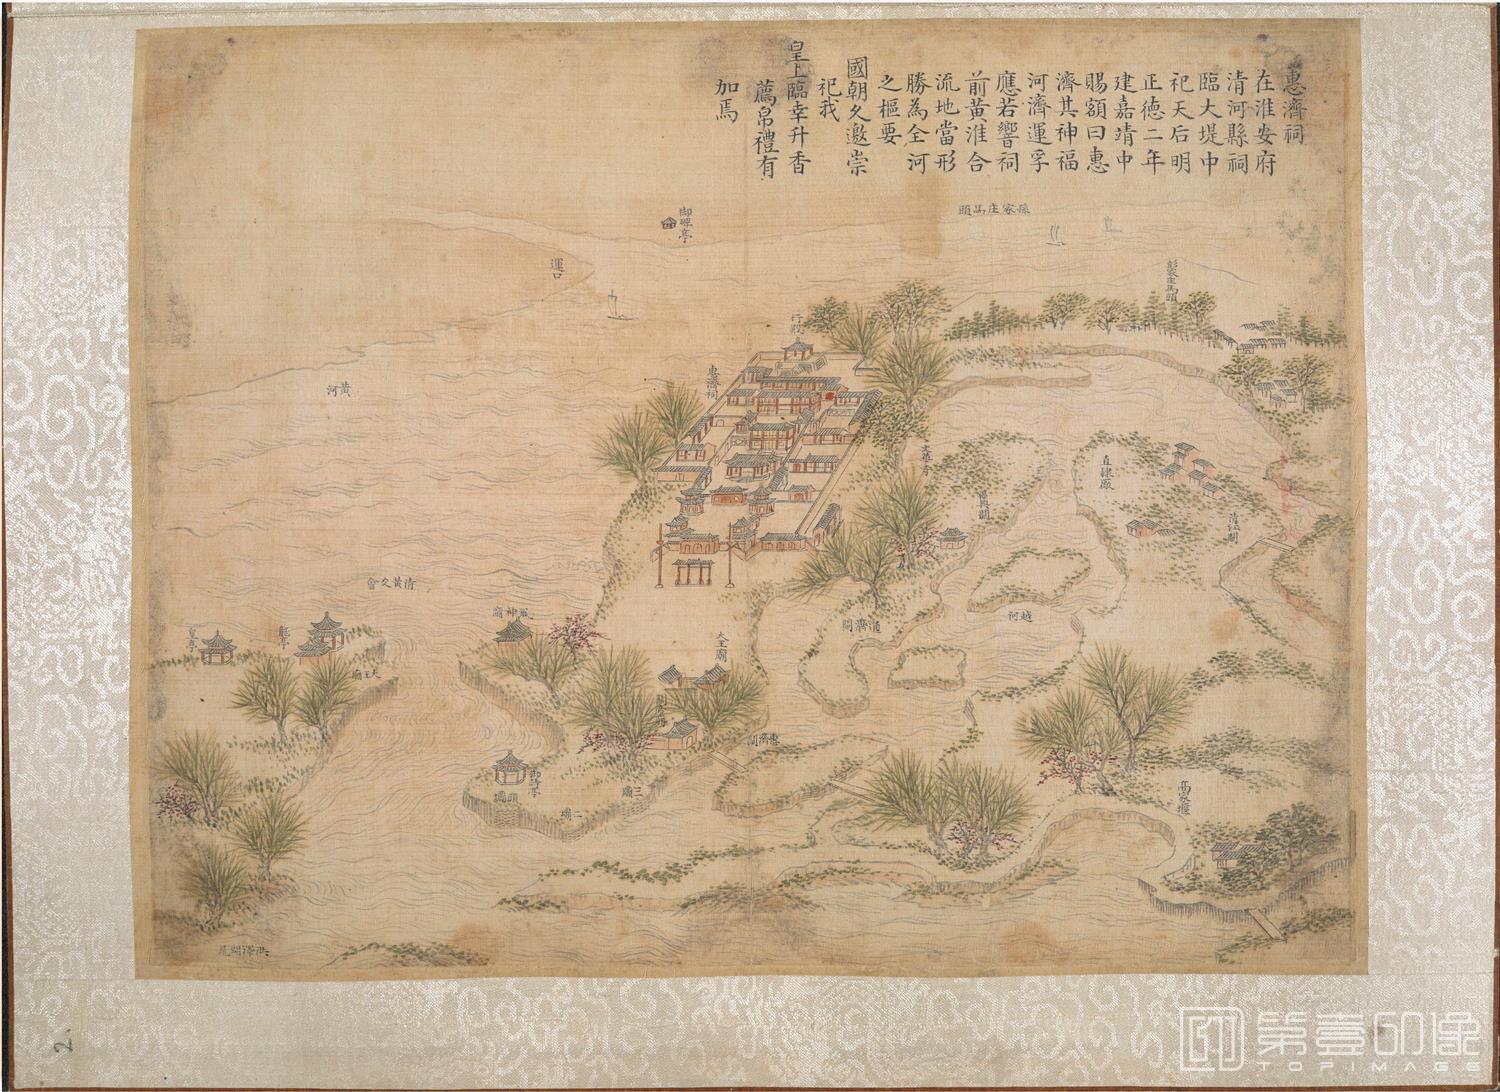 惠濟祠
在淮安府
清河縣祠
臨大堤中
祀天后明
正德二年
建嘉靖中
賜額曰惠
濟其神福
河濟運孚
應若響祠
前黃淮合
流地當形
勝為全河
之樞要
國朝久邀崇
祀我
皇上臨幸升香
薦帛禮有
加焉
孫家庄馬頭
御碑亭
運口
行殿
惠濟祠
黃河
直隸廠
越河
通濟閘
清黃交會
風神廟
大王廟
大王廟
惠濟閘
御詩亭
頭壩
二壩
三壩
高家堰
洪澤湖尾
2.
第壹印像
TOPIMAGE